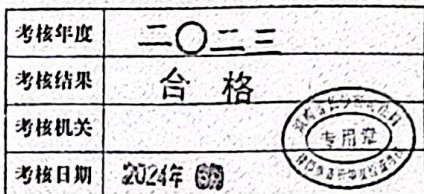 考核年度 二〇二三
考核结果 合格
考核机关
专用章
考核日期 2024年